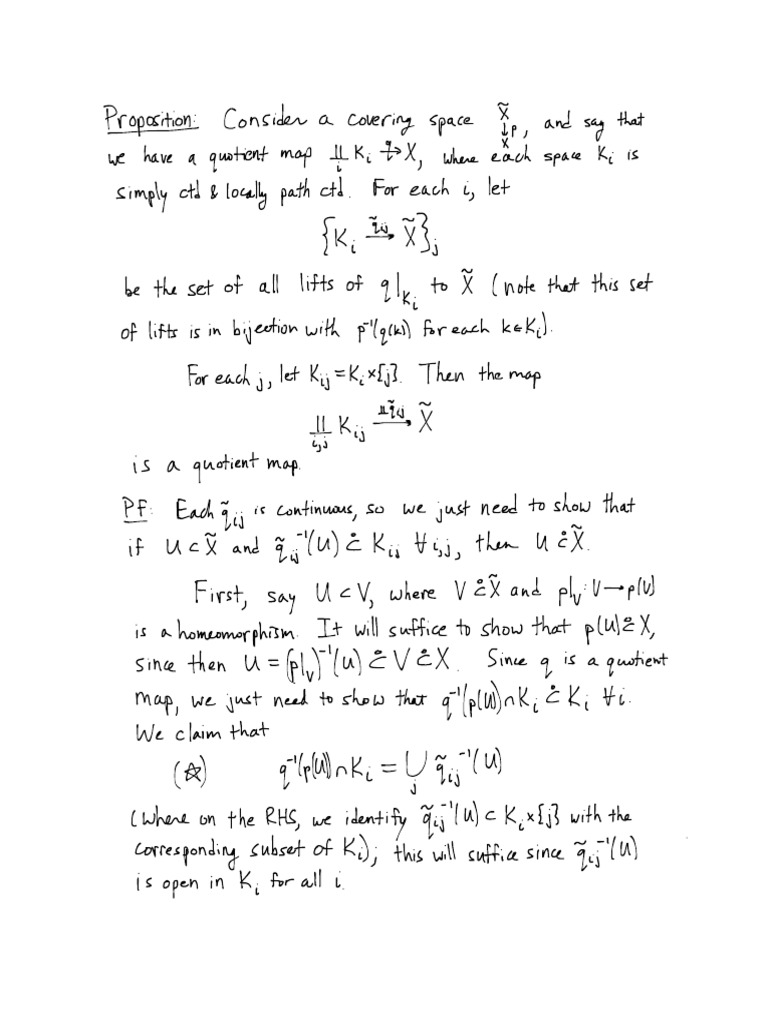 Proposition: Consider a covering space X̃ ↓p X, and say that
we have a quotient map ∐_i K_i →^q X, where each space K_i is
simply ctd & locally path ctd. For each i, let
{K_i →^{q̃_ij} X̃}_j
be the set of all lifts of q|_{K_i} to X̃ (note that this set
of lifts is in bijection with p⁻¹(q(k)) for each k∈K_i).
For each j, let K_ij = K_i×{j}. Then the map
∐_{i,j} K_ij →^{∐q̃_ij} X̃
is a quotient map.
Pf: Each q̃_ij is continuous, so we just need to show that
if U⊂X̃ and q̃_ij⁻¹(U) ⊂̊ K_ij ∀i,j, then U ⊂̊ X̃.
First, say U⊂V, where V ⊂̊ X̃ and p|_V: V→p(V)
is a homeomorphism. It will suffice to show that p(U) ⊂̊ X,
since then U = (p|_V)⁻¹(U) ⊂̊ V ⊂̊ X. Since q is a quotient
map, we just need to show that q⁻¹(p(U))∩K_i ⊂̊ K_i ∀i.
We claim that
(☆) q⁻¹(p(U))∩K_i = ∪_j q̃_ij⁻¹(U)
(where on the RHS, we identify q̃_ij⁻¹(U) ⊂ K_i×{j} with the
corresponding subset of K_i); this will suffice since q̃_ij⁻¹(U)
is open in K_i for all i.